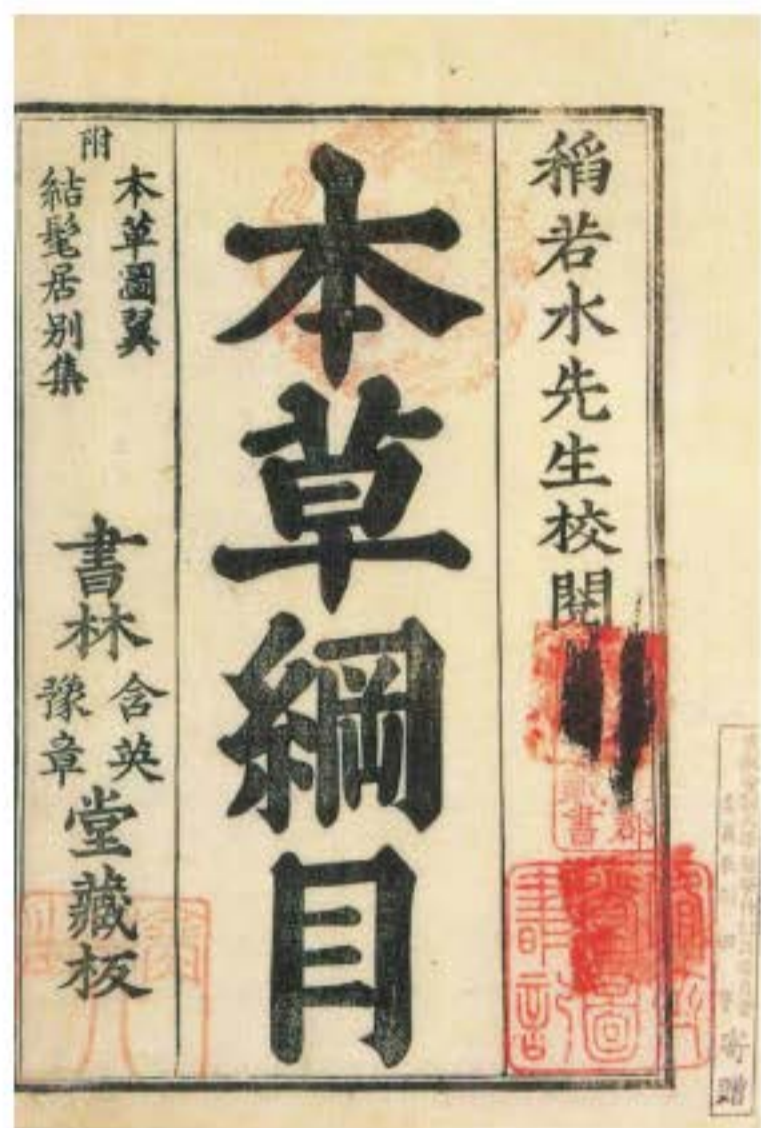 稻若水先生校閱
本草綱目
附
本草圖翼
結髦居別集
書林
含英
豫章
堂藏板
寄贈